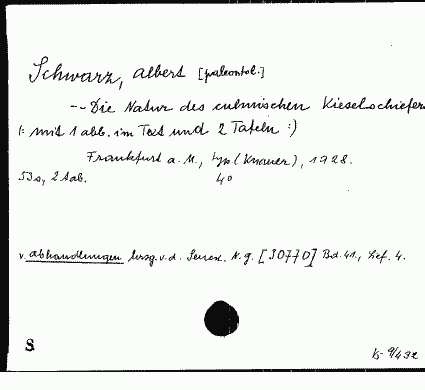 Schwarz, Albert [paleontol.]
-- Die Natur des culmischen Kieselschiefers
/: mit 1 Abb. im Text und 2 Tafeln :/
Frankfurt a. M., Typ (Knauer), 1928.
53 s, 2 tab. 4°
v. Abhandlungen hrsg. v. d. Senck. N. g. [30770] Bd. 41., Lief. 4.
S
K 9/492